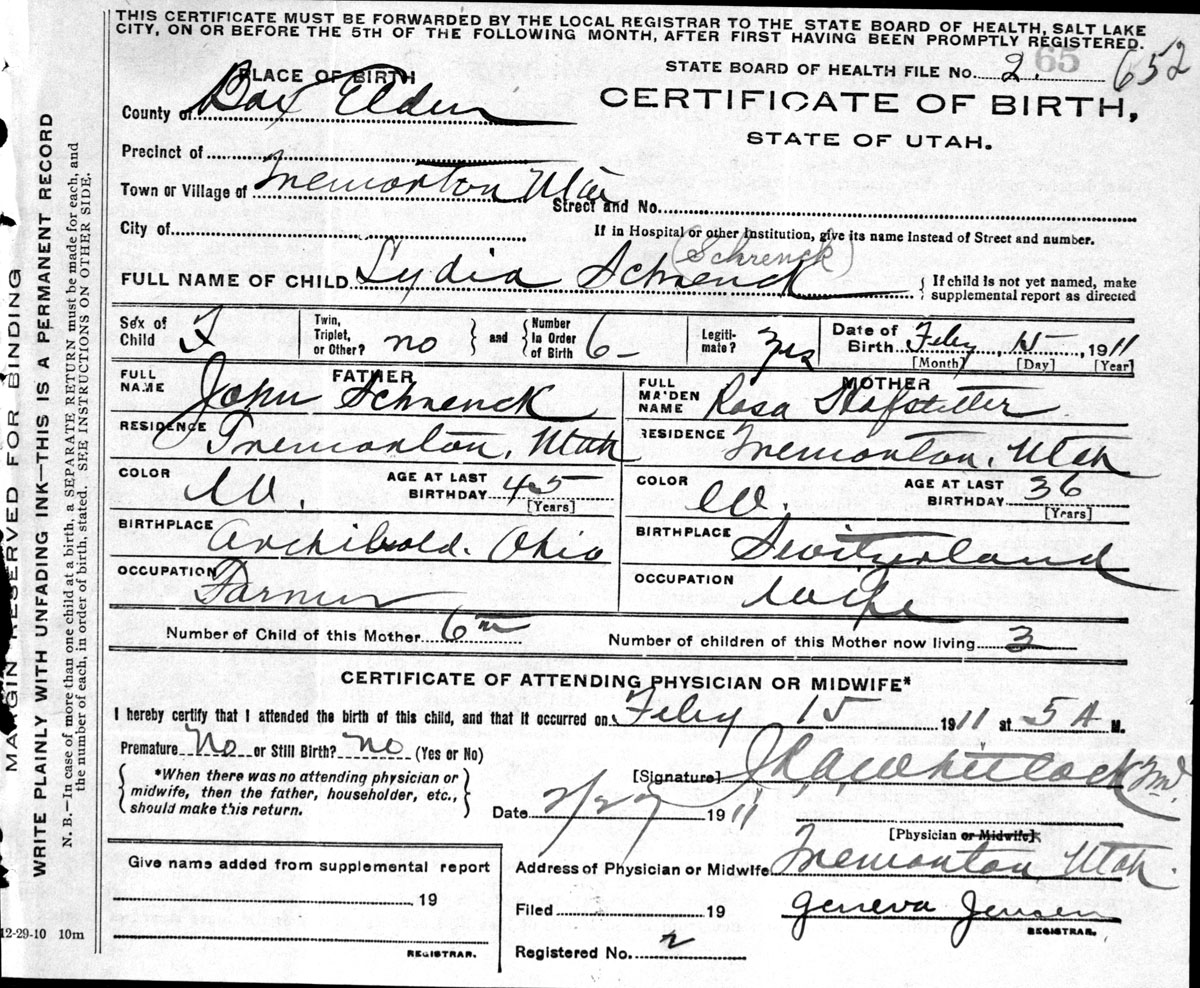 THIS CERTIFICATE MUST BE FORWARDED BY THE LOCAL REGISTRAR TO THE STATE BOARD OF HEALTH, SALT LAKE
CITY, ON OR BEFORE THE 5TH OF THE FOLLOWING MONTH, AFTER FIRST HAVING BEEN PROMPTLY REGISTERED.
STATE BOARD OF HEALTH FILE No. 2. 65 652
PLACE OF BIRTH
County of Box Elder
CERTIFICATE OF BIRTH,
STATE OF UTAH.
Precinct of
Town or Village of Tremonton Utah Street and No.
City of If in Hospital or other Institution, give its name instead of Street and number.
(Schrenck)
FULL NAME OF CHILD Lydia Schrenck { If child is not yet named, make
supplemental report as directed
Sex of Child F Twin, Triplet, or Other? no } and { Number In Order of Birth 6 Legiti-mate? Yes Date of Birth Feby, 15, 1911
[Month] [Day] [Year]
FATHER
FULL NAME John Schrenck
RESIDENCE Tremonton, Utah
COLOR W. AGE AT LAST BIRTHDAY 45 [Years]
BIRTHPLACE Archibold. Ohio
OCCUPATION Farmer
MOTHER
FULL MAIDEN NAME Rosa
RESIDENCE Tremonton, Utah
COLOR W. AGE AT LAST BIRTHDAY 36 [Years]
BIRTHPLACE Switzerland
OCCUPATION Wife
Number of Child of this Mother 6th Number of children of this Mother now living 3
CERTIFICATE OF ATTENDING PHYSICIAN OR MIDWIFE*
I hereby certify that I attended the birth of this child, and that it occurred on Feby 15 1911 at 5 A M.
Premature No or Still Birth? no (Yes or No)
*When there was no attending physician or
midwife, then the father, householder, etc.,
should make this return.
[Signature] Whitlock MD.
Date 2/27 1911
[Physician or Midwife]
Address of Physician or Midwife Tremonton, Utah.
Filed 19 Geneva Jensen
REGISTRAR.
Registered No. 2
Give name added from supplemental report
19
REGISTRAR.
MARGIN RESERVED FOR BINDING
WRITE PLAINLY WITH UNFADING INK—THIS IS A PERMANENT RECORD
N. B.—In case of more than one child at a birth, a SEPARATE RETURN must be made for each, and
the number of each, in order of birth, stated. SEE INSTRUCTIONS ON OTHER SIDE.
12-29-10 10m